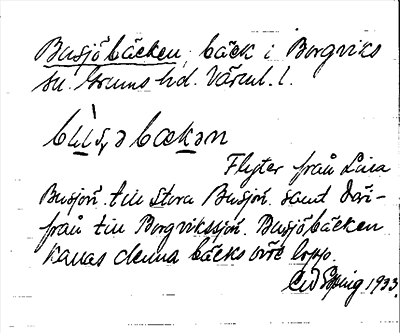 Busjöbäcken, bäck i Borgviks
sn. Grums hd. Värml. l.
Flyter från Lilla
Busjön till Stora Busjön samt där-
ifrån till Borgvikssjön. Busjöbäcken
kallas denna bäcks övre lopp.
1933.